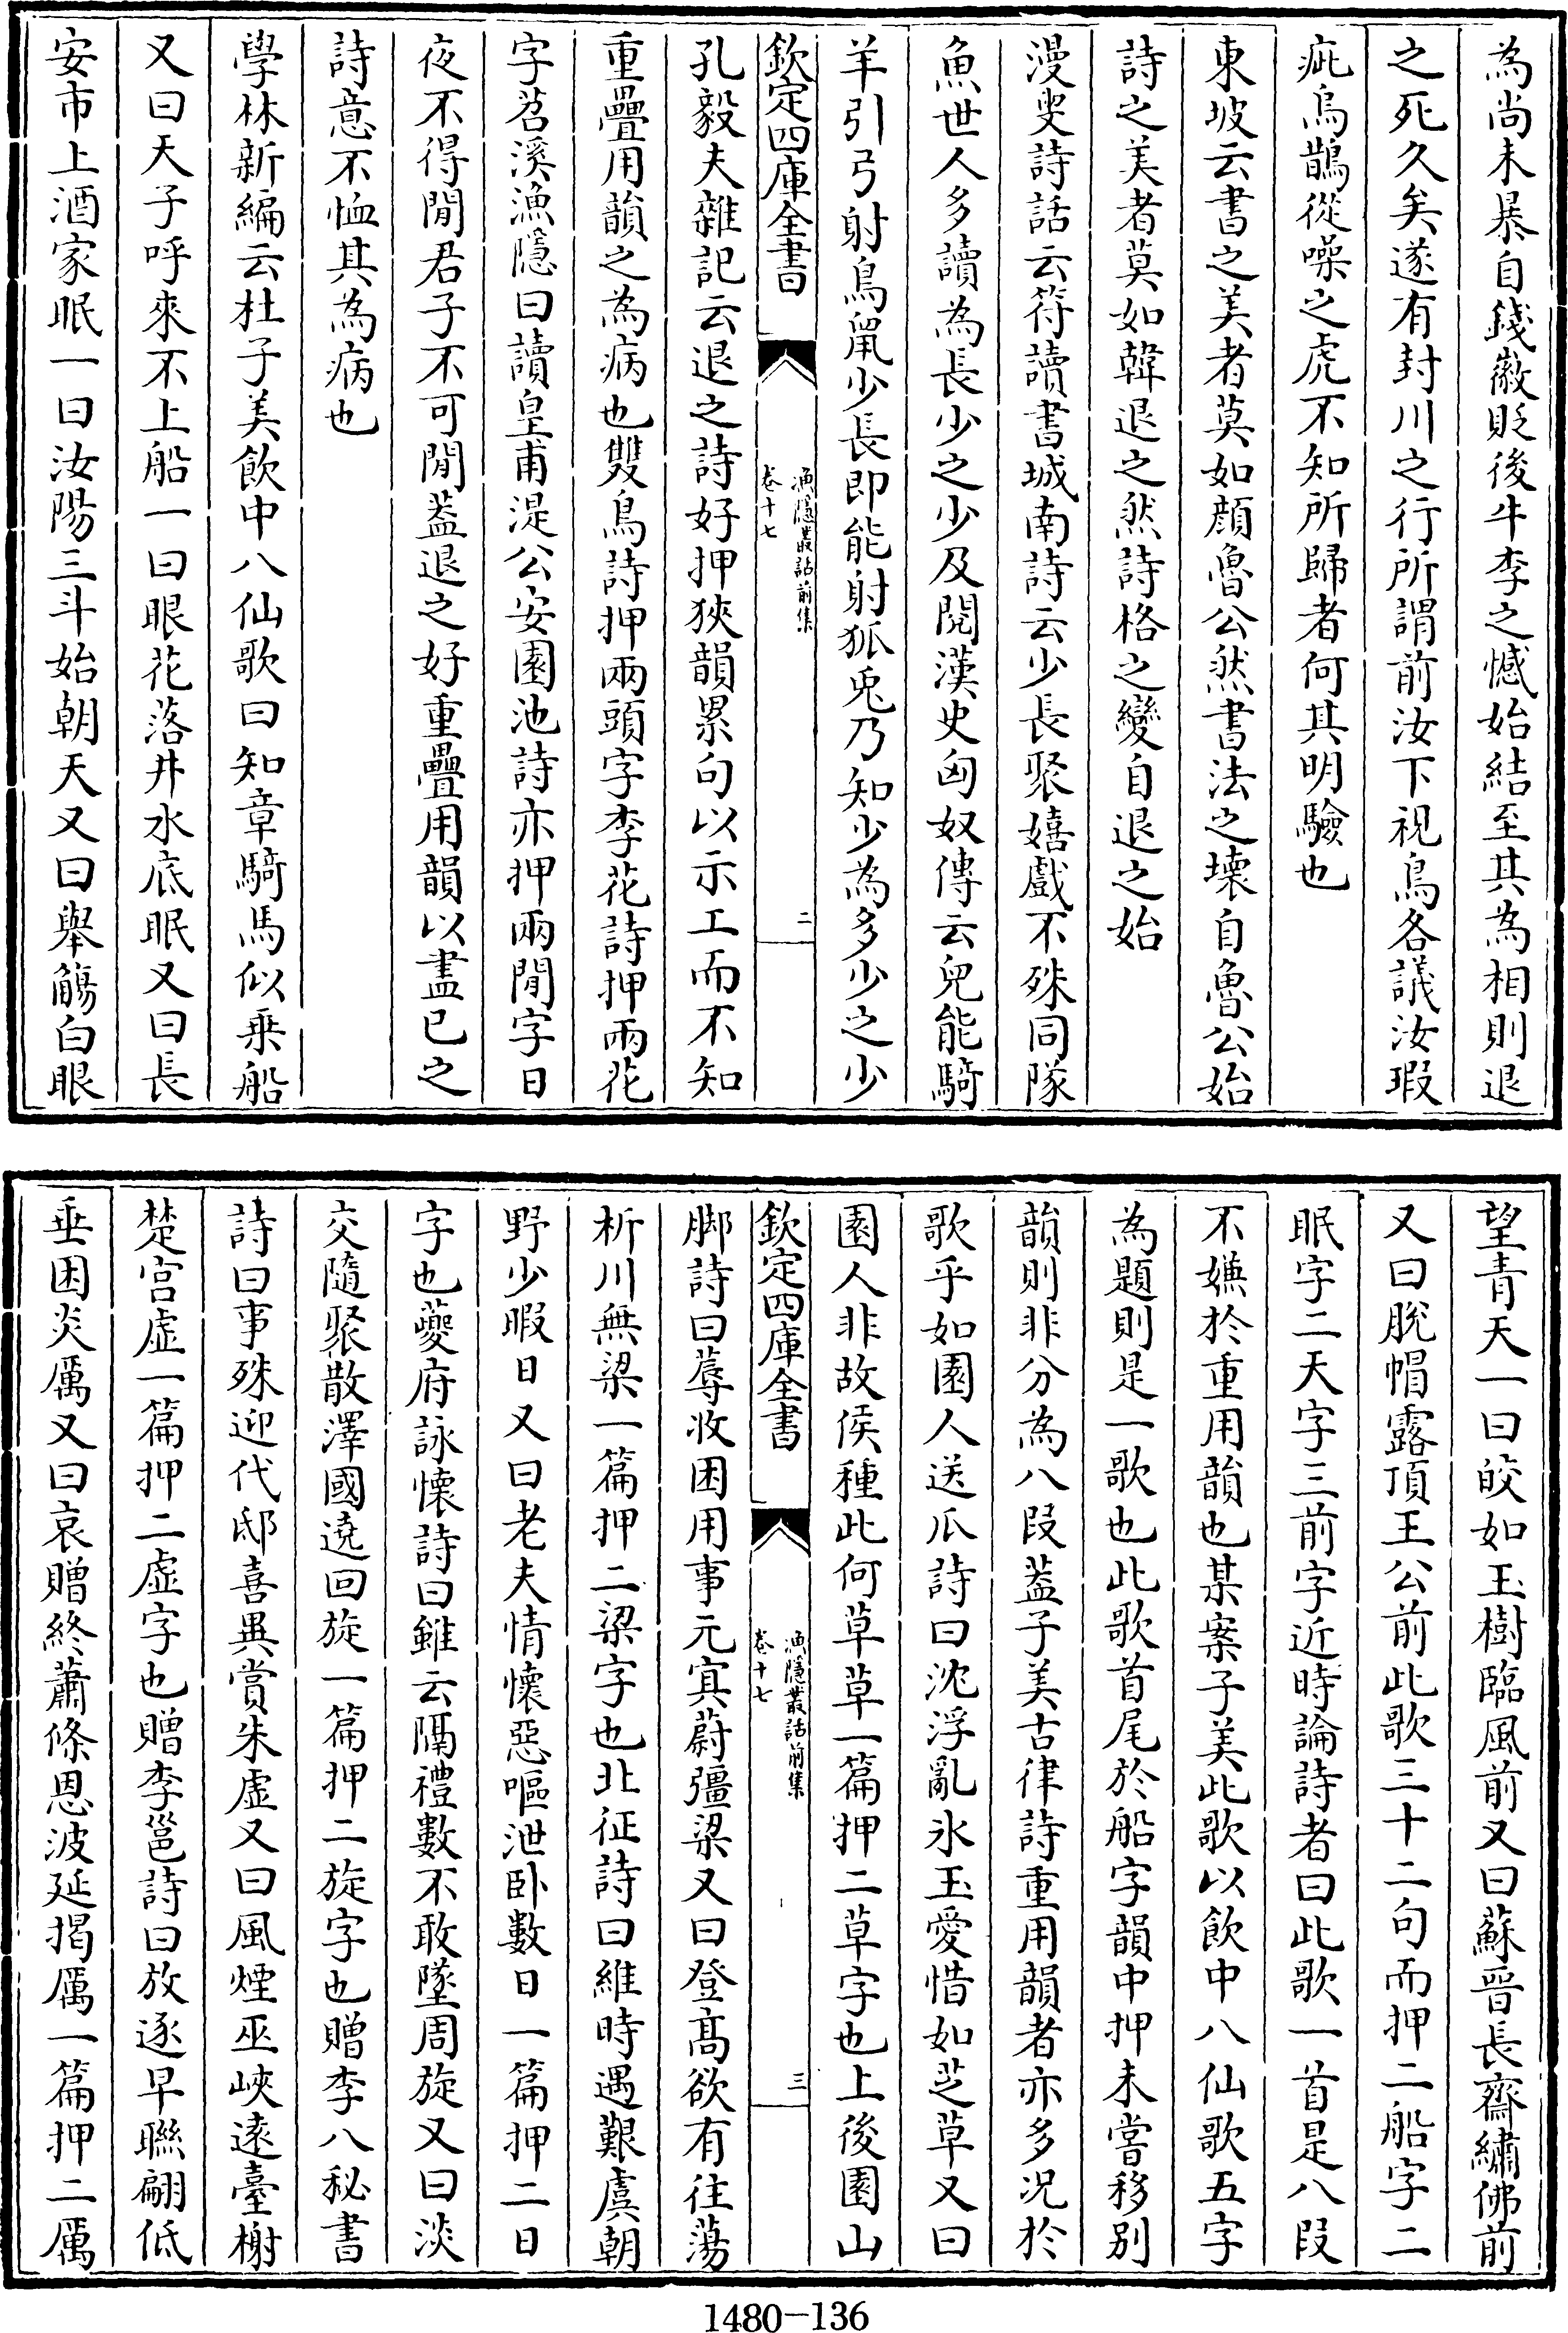 為尚未暴自錢徽貶後牛李之憾始結至其為相則退
之死久矣遂有封川之行所謂前汝下視鳥各議汝瑕
疵烏鵲從噪之虎不知所歸者何其明驗也
東坡云書之美者莫如顔魯公然書法之壊自魯公始
詩之美者莫如韓退之然詩格之變自退之始
漫叟詩話云符讀書城南詩云少長聚嬉戲不殊同隊
魚世人多讀為長少之少及閲漢史匈奴傳云兒能騎
羊引弓射鳥鼠少長即能射狐兎乃知少為多少之少
欽定四庫全書
漁隱叢話前集
卷十七
二
孔毅夫雜記云退之詩好押狹韻累句以示工而不知
重疊用韻之為病也雙鳥詩押兩頭字李花詩押兩花
字苕溪漁隱曰讀皇甫湜公安園池詩亦押兩閒字日
夜不得閒君子不可閒葢退之好重疊用韻以盡已之
詩意不恤其為病也
學林新編云杜子美飲中八仙歌曰知章騎馬似乗船
又曰天子呼來不上船一曰眼花落井水底眠又曰長
安市上酒家眠一曰汝陽三斗始朝天又曰舉觴白眼
望青天一曰皎如玉樹臨風前又曰蘇晉長齋繡佛前
又曰脫帽露頂王公前此歌三十二句而押二船字二
眠字二天字三前字近時論詩者曰此歌一首是八段
不嫌於重用韻也某案子美此歌以飲中八仙歌五字
為題則是一歌也此歌首尾於船字韻中押未嘗移别
韻則非分為八段葢子美古律詩重用韻者亦多况於
歌乎如園人送瓜詩曰沈浮亂氷玉愛惜如芝草又曰
園人非故侯種此何草草一篇押二草字也上後園山
欽定四庫全書
漁隱叢話前集
卷十七
三
脚詩曰蓐收困用事元㝠蔚彊梁又曰登髙欲有往蕩
析川無梁一篇押二梁字也北征詩曰維時遇艱虞朝
野少暇日又曰老夫情懷惡嘔泄卧數日一篇押二日
字也夔府詠懷詩曰雖云隔禮數不敢墜周旋又曰淡
交隨聚散澤國遶回旋一篇押二旋字也贈李八秘書
詩曰事殊迎代邸喜異賞朱虛又曰風煙巫峽逺臺榭
楚宫虛一篇押二虛字也贈李邕詩曰放逐早聯翩低
垂困炎厲又曰哀贈終蕭條恩波延掲厲一篇押二厲
1480-136